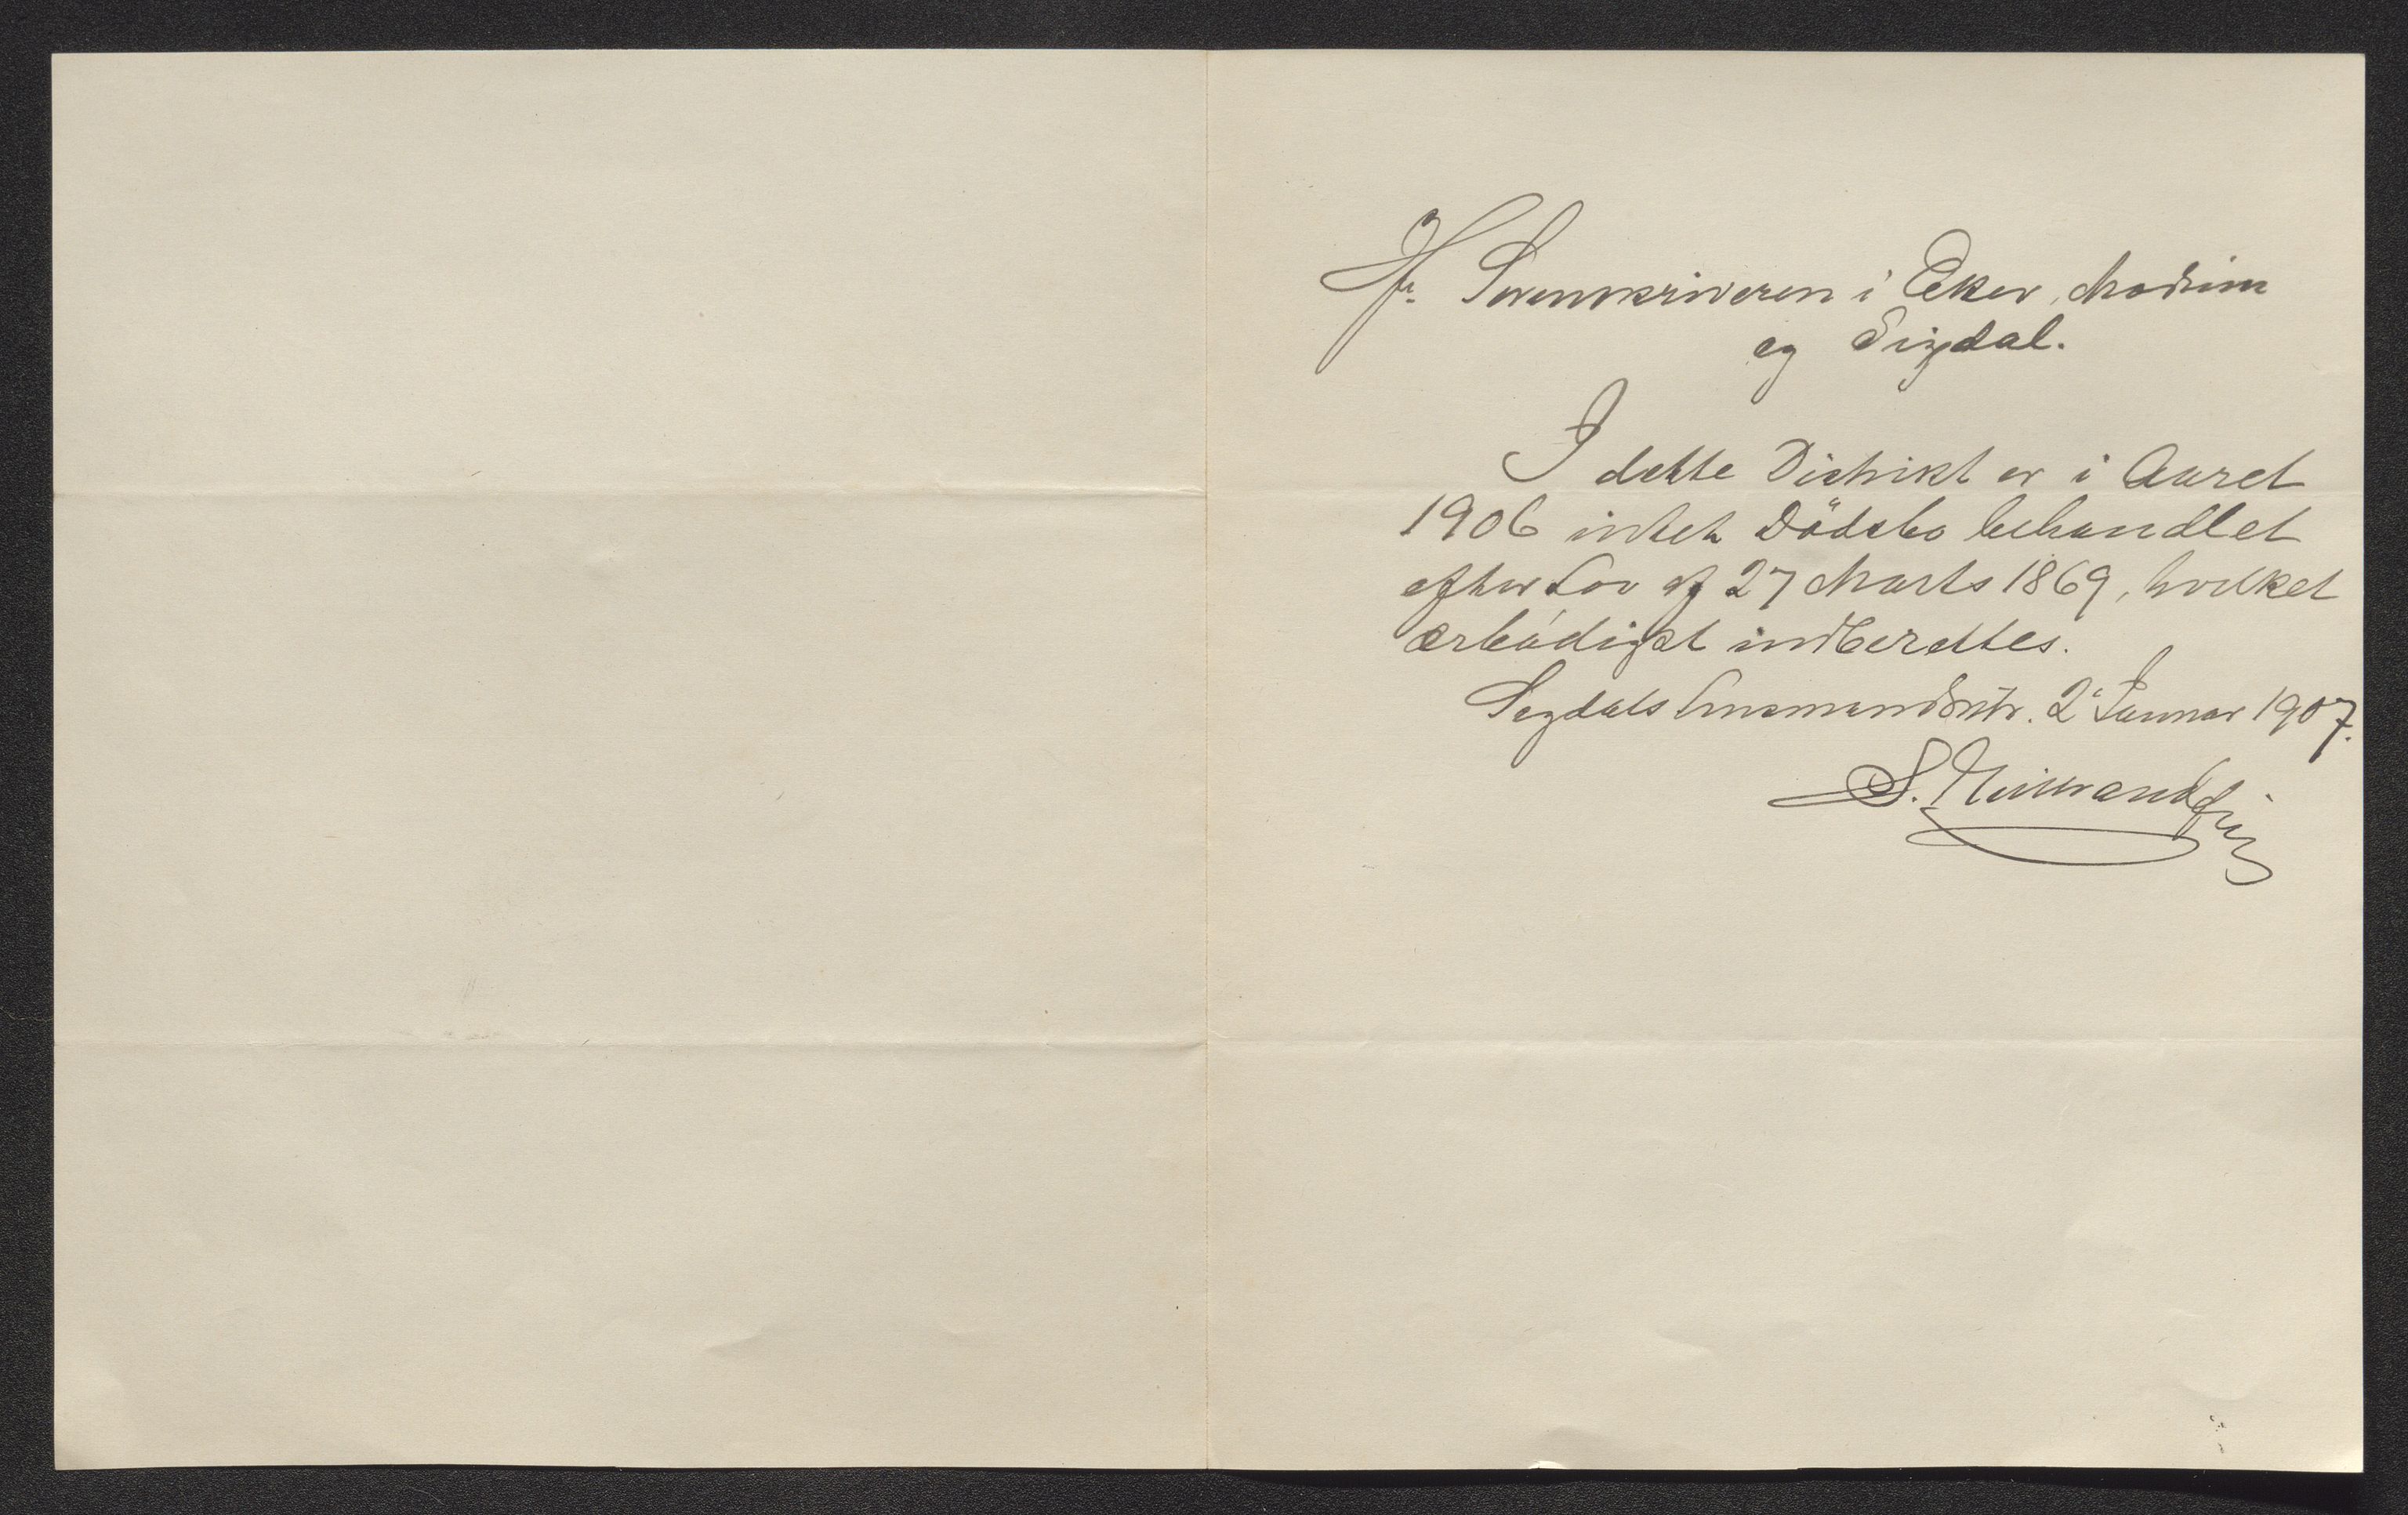 Hr. Sorenskriveren i Eker, Modum
og Sigdal.
I dette Distrikt er i Aaret
1906 intet Dödsbo behandlet
efter Lov af 27 Marts 1869, hvilket
ærbödigst indberettes.
Sigdals Lensmandsktr. 2 Januar 1907.
S.